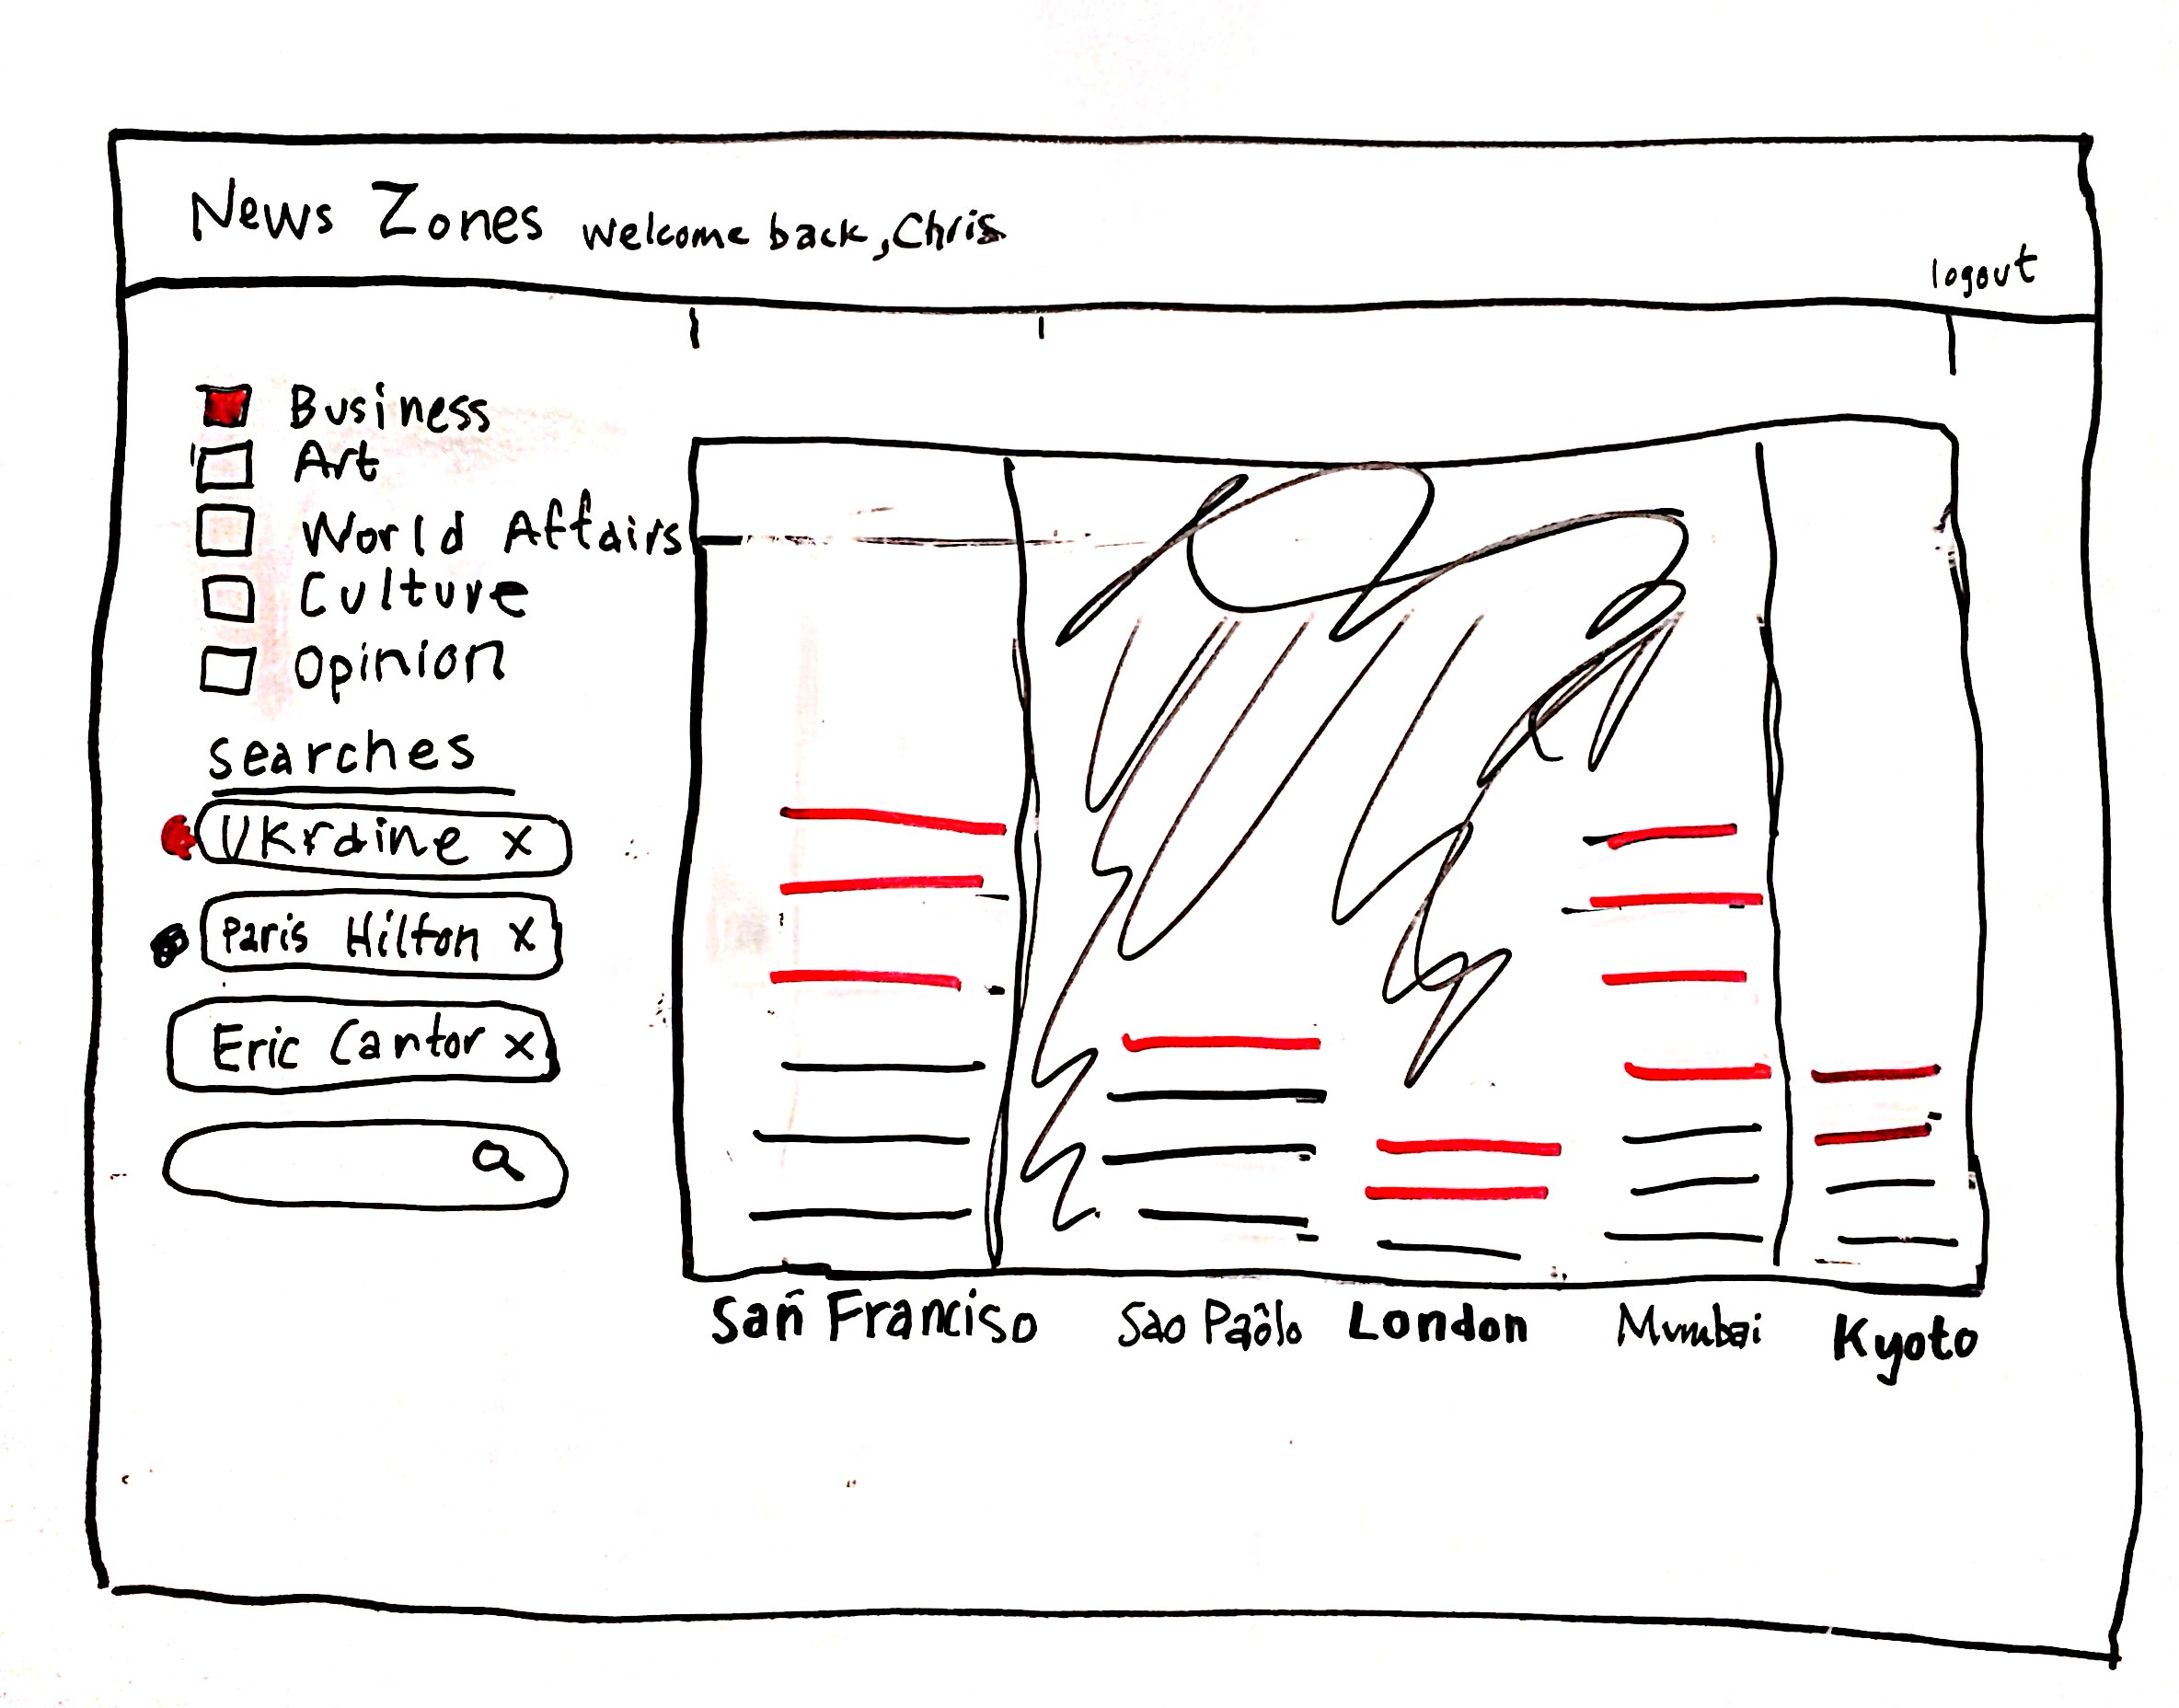 News Zones welcome back, Chris
logout
Business
Art
World Affairs
Culture
Opinion
searches
Ukraine x
Paris Hilton x
Eric Cantor x
San̄ Franciso
Sao Paôlo
London
Mumbai
Kyoto